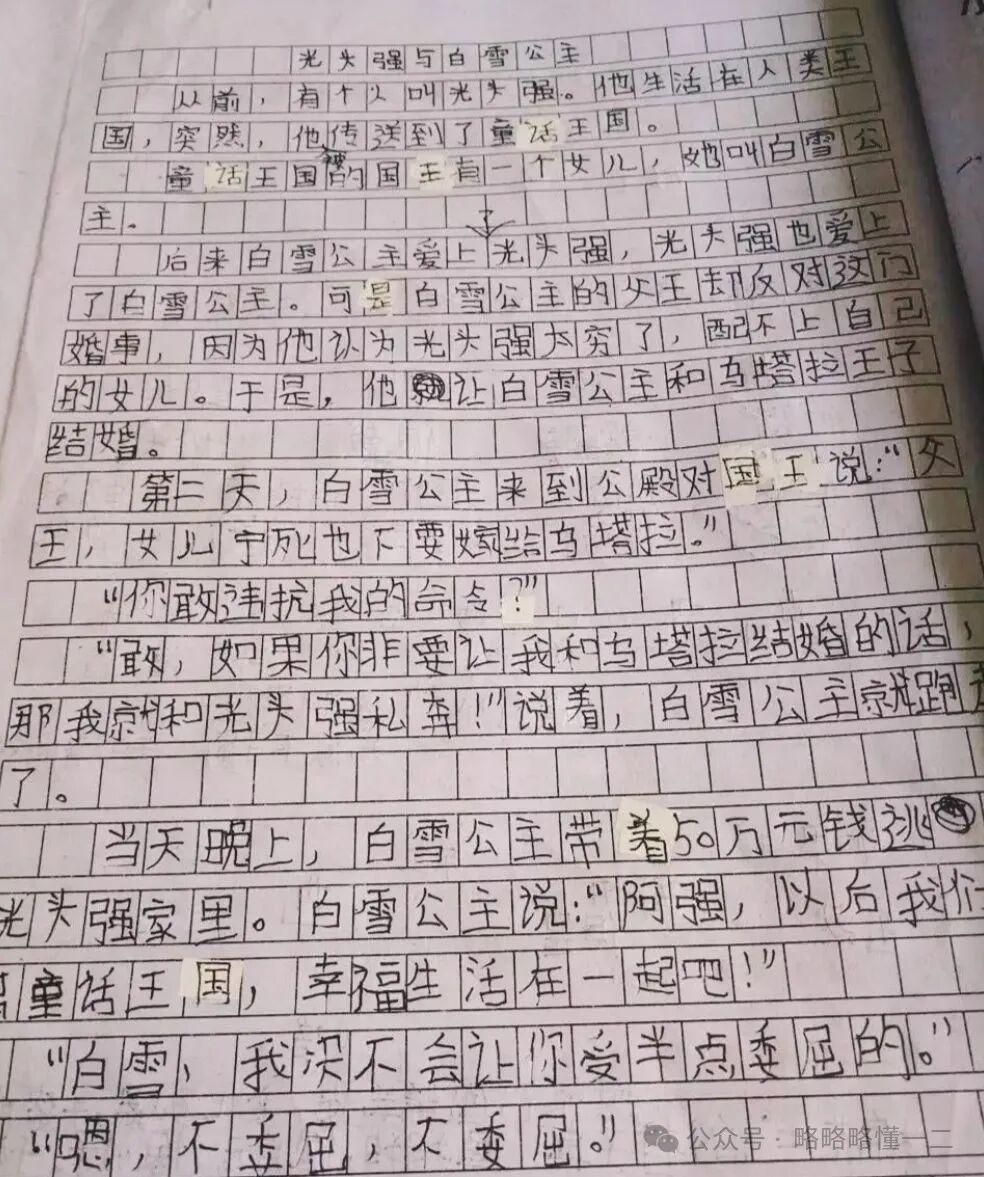 光头强与白雪公主
从前，有个人叫光头强。他生活在人类王
国，突然，他被传送到了童话王国。
童话王国的国王有一个女儿，她叫白雪公
主。
后来白雪公主爱上了光头强，光头强也爱上
了白雪公主。可是白雪公主的父王却反对这门
婚事，因为他认为光头强太穷了，配不上自己
的女儿。于是，他让白雪公主和乌塔拉王子
结婚。
第二天，白雪公主来到公殿对国王说："父
王，女儿宁死也不要嫁给乌塔拉。"
"你敢违抗我的命令？"
"敢，如果你非要让我和乌塔拉结婚的话，
那我就和光头强私奔！"说着，白雪公主就跑走
了。
当天晚上，白雪公主带着50万元钱逃
光头强家里。白雪公主说："阿强，以后我们
童话王国，幸福生活在一起吧！"
"白雪，我决不会让你受半点委屈的。"
"嗯，不委屈，不委屈。"
公众号：略略略懂一二